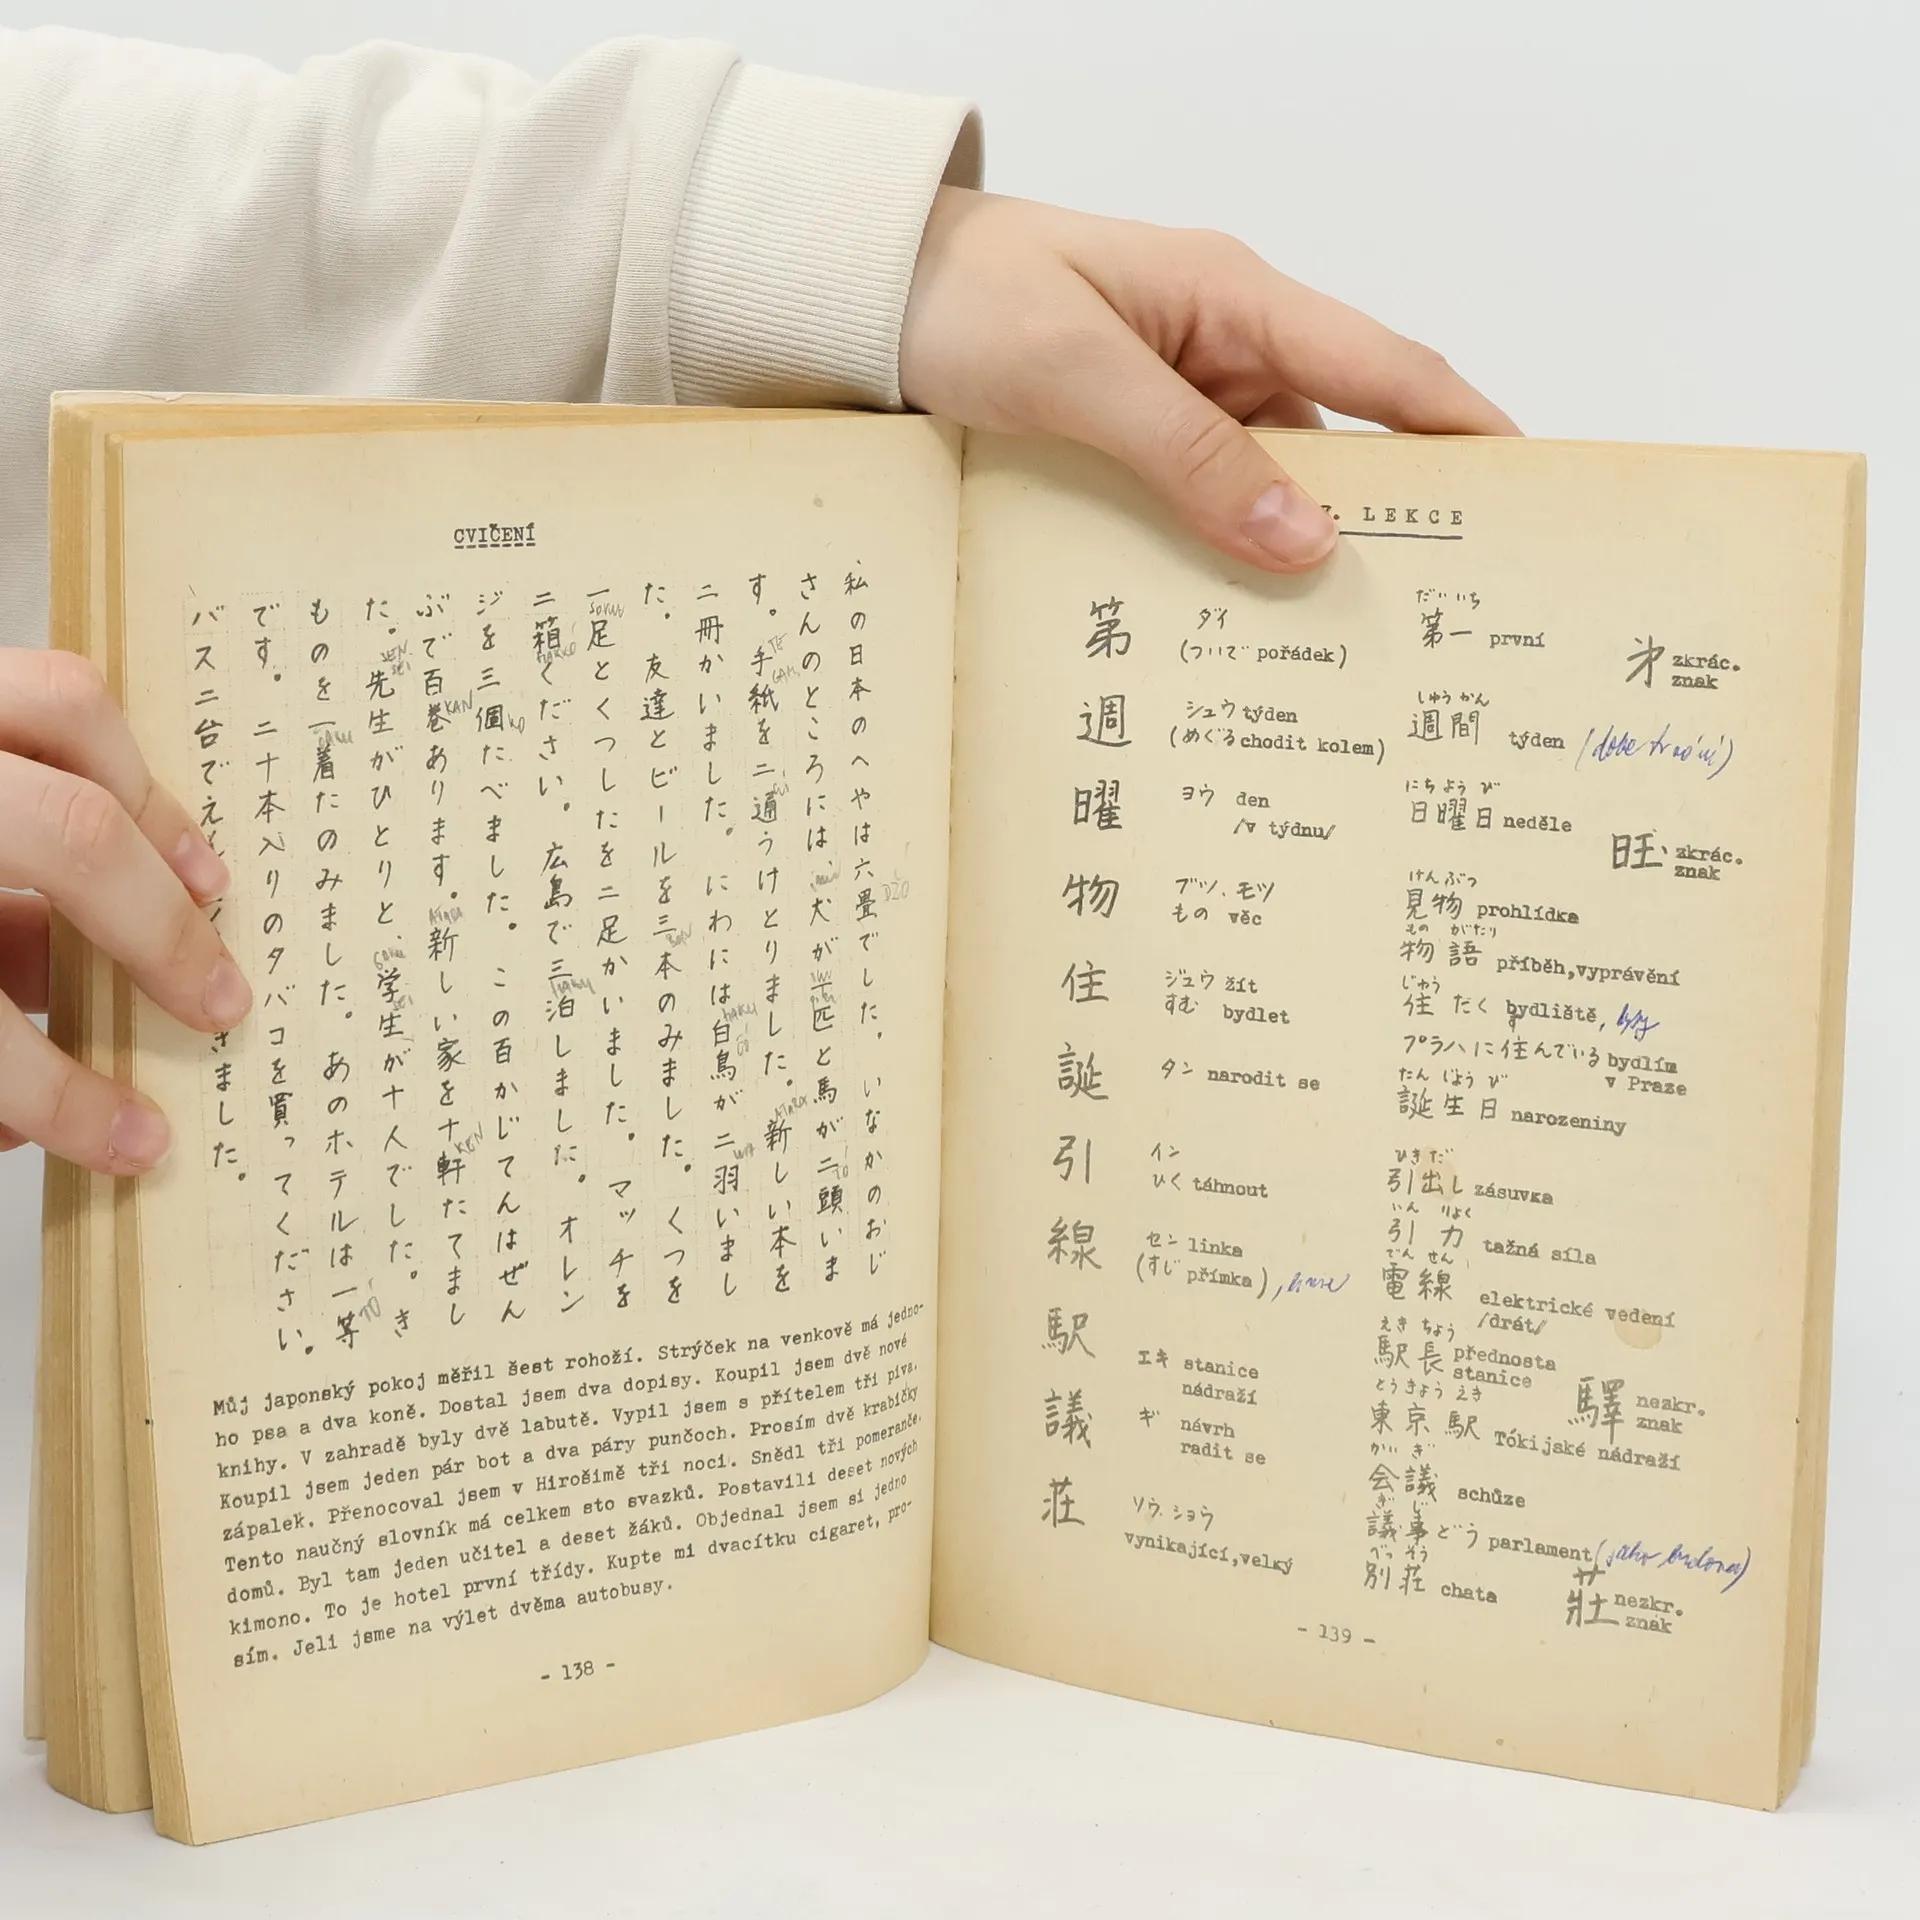 CVIČENÍ
私の日本のへやは六畳でした。いなかのおじ
さんのところには、犬が一匹と馬が二頭いま
す。手紙を二通うけとりました。新しい本を
二冊かいました。にわには白鳥が二羽いまし
た。友達とビールを三本のみました。くつを
一足とくつしたを二足かいました。マッチを
二箱ください。広島で三泊しました。オレン
ジを三個たべました。この百かじてんはぜん
ぶで百巻あります。新しい家を十軒たてまし
た。先生がひとりと、学生が十人でした。き
ものを一着たのみました。あのホテルは一等
です。二十本入りのタバコを買ってください。
バス二台でえん きました。
Můj japonský pokoj měřil šest rohoží. Strýček na venkově má jedno-
ho psa a dva koně. Dostal jsem dva dopisy. Koupil jsem dvě nové
knihy. V zahradě byly dvě labutě. Vypil jsem s přítelem tři piva.
Koupil jsem jeden pár bot a dva páry punčoch. Prosím dvě krabičky
zápalek. Přenocoval jsem v Hirošimě tři noci. Snědl tři pomeranče.
Tento naučný slovník má celkem sto svazků. Postavili deset nových
domů. Byl tam jeden učitel a deset žáků. Objednal jsem si jedno
kimono. To je hotel první třídy. Kupte mi dvacítku cigaret, pro-
sím. Jeli jsme na výlet dvěma autobusy.
- 138 -
7. LEKCE
第 ダイ (ついで pořádek) だいいち 第一 první 㐧 zkrác. znak
週 シュウ týden (めぐる chodit kolem) しゅうかん 週間 týden (doba trvání)
曜 ヨウ den /v týdnu/ にちようび 日曜日 neděle 旺 zkrác. znak
物 ブツ、モツ もの věc けんぶつ 見物 prohlídka
ものがたり 物語 příběh,vyprávění
住 ジュウ žít すむ bydlet じゅう 住だく bydliště, byt
プラハに住んでいる bydlím v Praze
誕 タン narodit se たんじょうび 誕生日 narozeniny
引 イン ひく táhnout ひきだ 引出し zásuvka
いんりょく 引力 tažná síla
線 セン linka (すじ přímka) でんせん 電線 elektrické vedení /drát/
駅 エキ stanice nádraží えきちょう 駅長 přednosta stanice 驛 nezkr. znak
とうきょうえき 東京駅 Tókijské nádraží
議 ギ návrh radit se かいぎ 会議 schůze
ぎじ 議事どう parlament (jako budova)
荘 ソウ、ショウ vynikající,velký べっそう 別荘 chata 莊 nezkr. znak
- 139 -